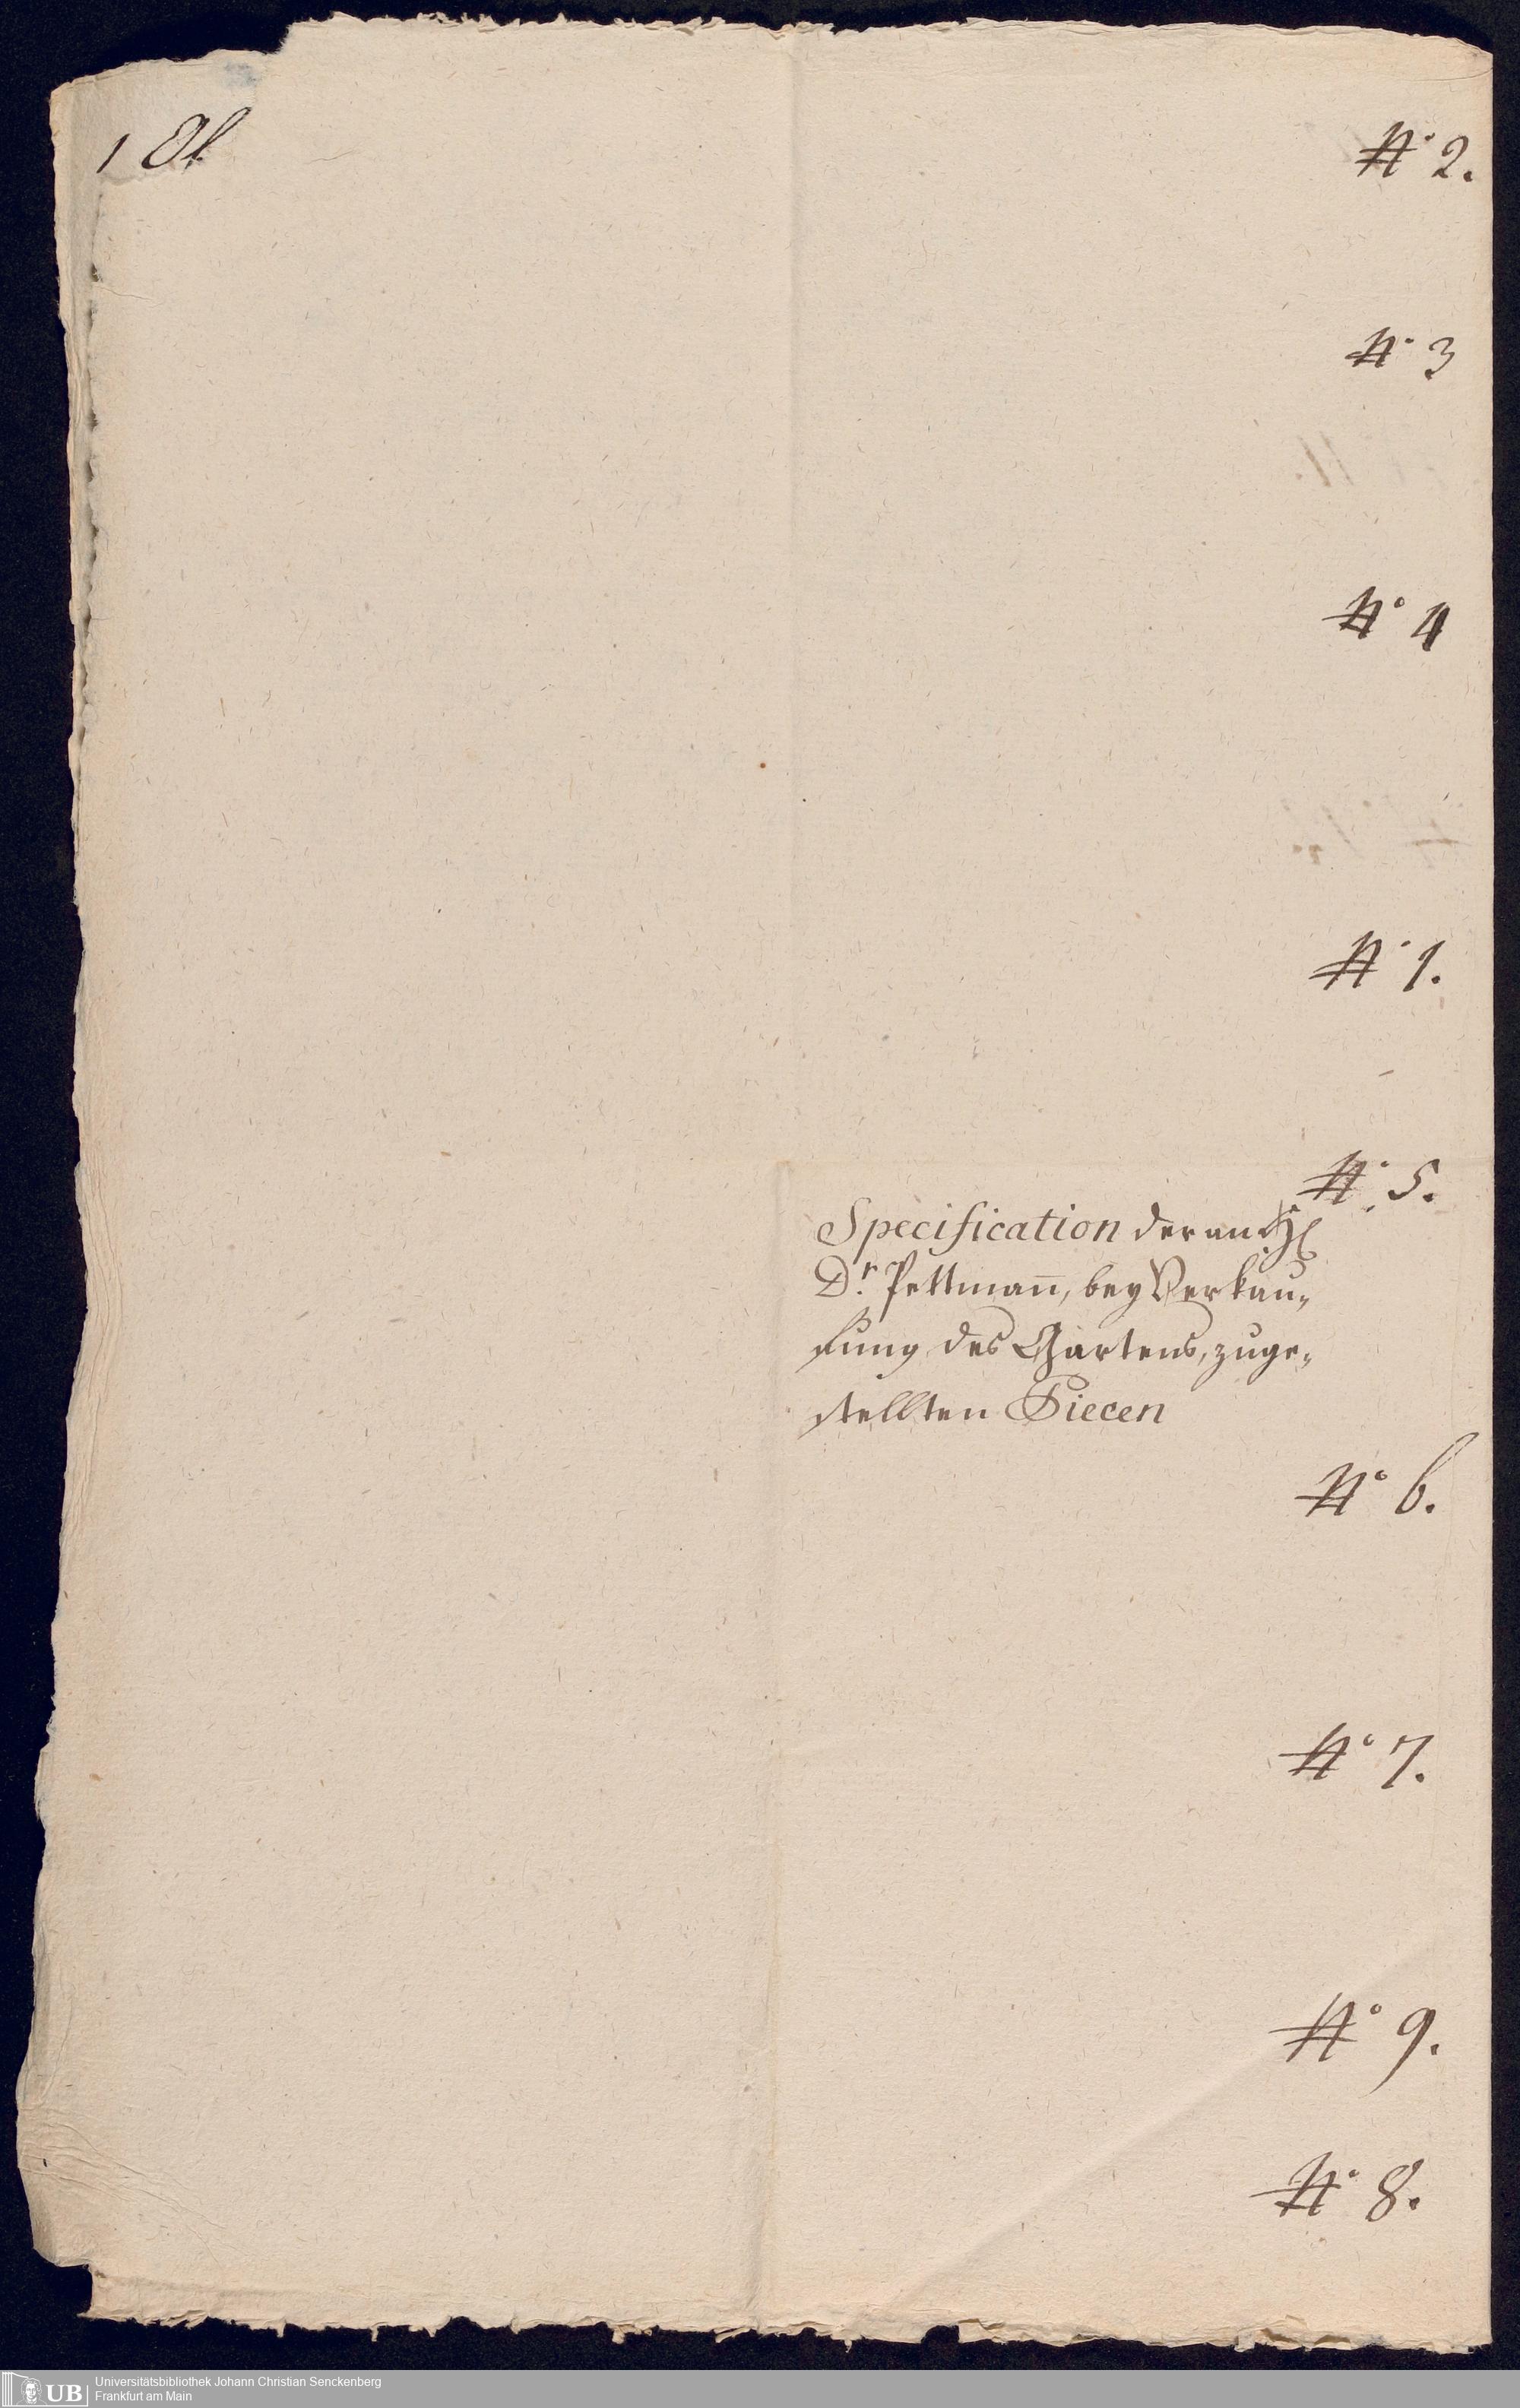 1 Ol.
N° 2.
N° 3
N° 4
N° 1.
N° 5.
Specification der an H
Dr. Pettmañ, bey Verkau„
fung des Gartens, zuge„
stellten Piecen
N° 6.
N° 7.
N° 9.
N° 8.
UB
Universitätsbibliothek Johann Christian Senckenberg
Frankfurt am Main